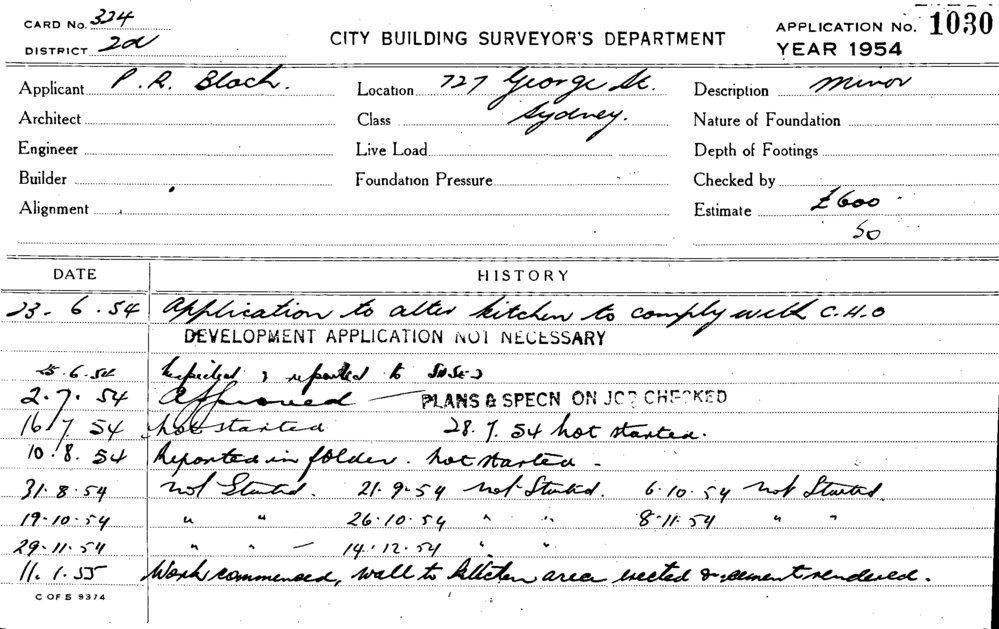 CARD No. 324
DISTRICT 2d
CITY BUILDING SURVEYOR'S DEPARTMENT
APPLICATION No. 1030
YEAR 1954
Applicant P. R. Bloch. Location 727 George St. Description Minor
Architect Class Sydney. Nature of Foundation
Engineer Live Load Depth of Footings
Builder Foundation Pressure Checked by
Alignment Estimate £600
50
DATE HISTORY
23. 6. 54 Application to alter kitchen to comply with C.H.O
DEVELOPMENT APPLICATION NOT NECESSARY
25.6.54 Inspected & reported to
2. 7. 54 Approved — PLANS & SPECN ON JOB CHECKED
16/7 54 not started 28. 7. 54 not started.
10. 8. 54 Reported in folder. not started -
31. 8. 54 Not Started. 21. 9. 54 Not Started. 6. 10. 54 Not Started.
19. 10. 54 " " 26. 10. 54 " " 8. 11. 54 " "
29. 11. 54 " " — 14. 12. 54 " "
11. 1. 55 Work commenced, wall to kitchen area erected & cement rendered.
C OF S 9374